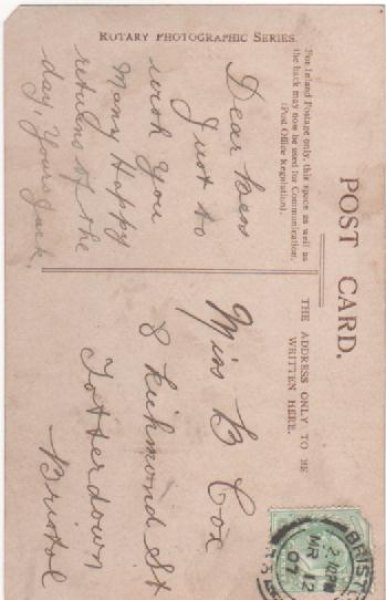 POST CARD.
For Inland Postage only, this space as well as
the back may now be used for Communication.
(Post Office Regulation).
THE ADDRESS ONLY TO BE
WRITTEN HERE.
Dear
Just to
wish You
Many Happy
returns of the
day, Yours Jack.
Miss B Cox
8 Richmond St
Totterdown
Bristol
ROTARY PHOTOGRAPHIC SERIES.
BRISTOL
MR 12
07